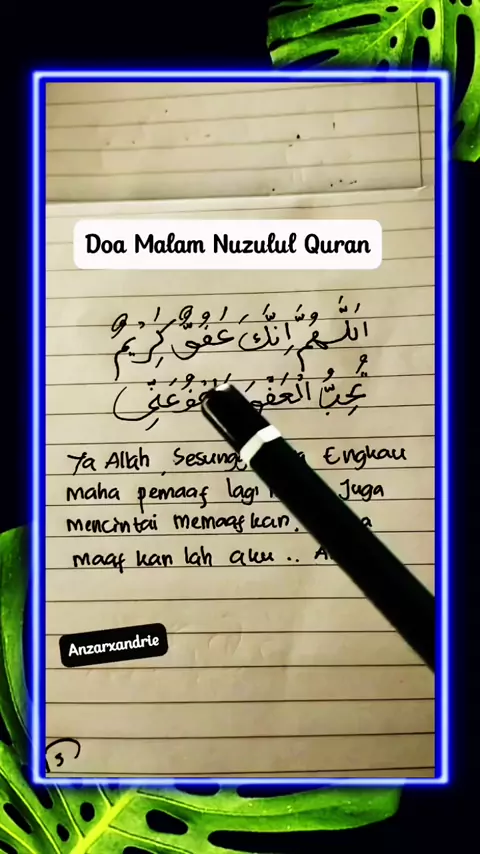 Doa Malam Nuzulul Quran
اَللَّهُمَّ اِنَّكَ عَفُوٌّ كَرِيْمٌ
تُحِبُّ الْعَفْوَ عَنِّي
Ya Allah, Engkau
maha pemaaf lagi Juga
mencintai memaafkan,
maaf kan lah aku ..
Anzarxandrie
3